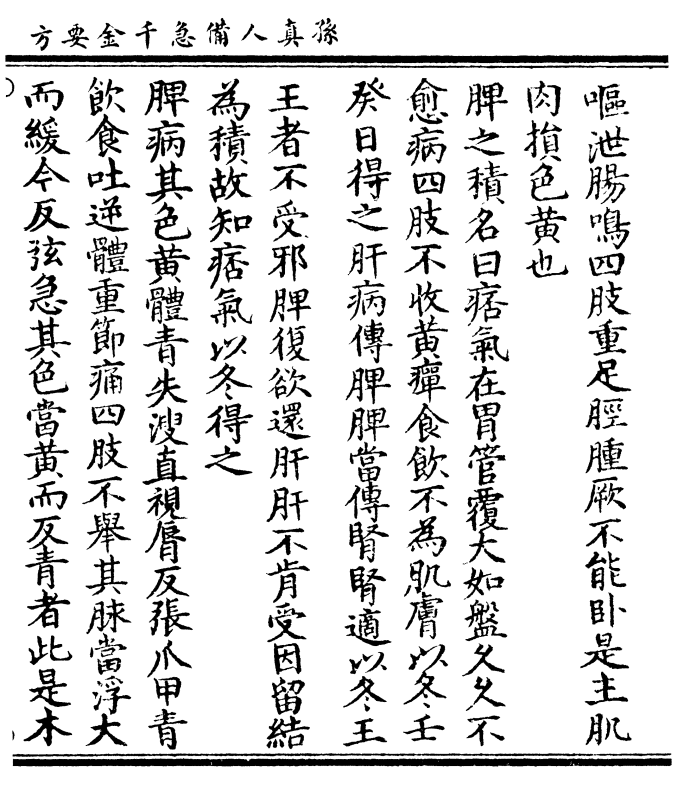 孫真人備急千金要方
嘔泄腸鳴四肢重足脛腫厥不能卧是主肌
肉損色黄也
脾之積名曰痞氣在胃管覆大如盤久久不
愈病四肢不收黄癉食飲不為肌膚以冬壬
癸日得之肝病傳脾脾當傳腎腎適以冬王
王者不受邪脾復欲還肝肝不肯受因留結
為積故知痞氣以冬得之
脾病其色黄體青失溲直視脣反張爪甲青
飲食吐逆體重節痛四肢不舉其脉當浮大
而緩今反弦急其色當黄而反青者此是木